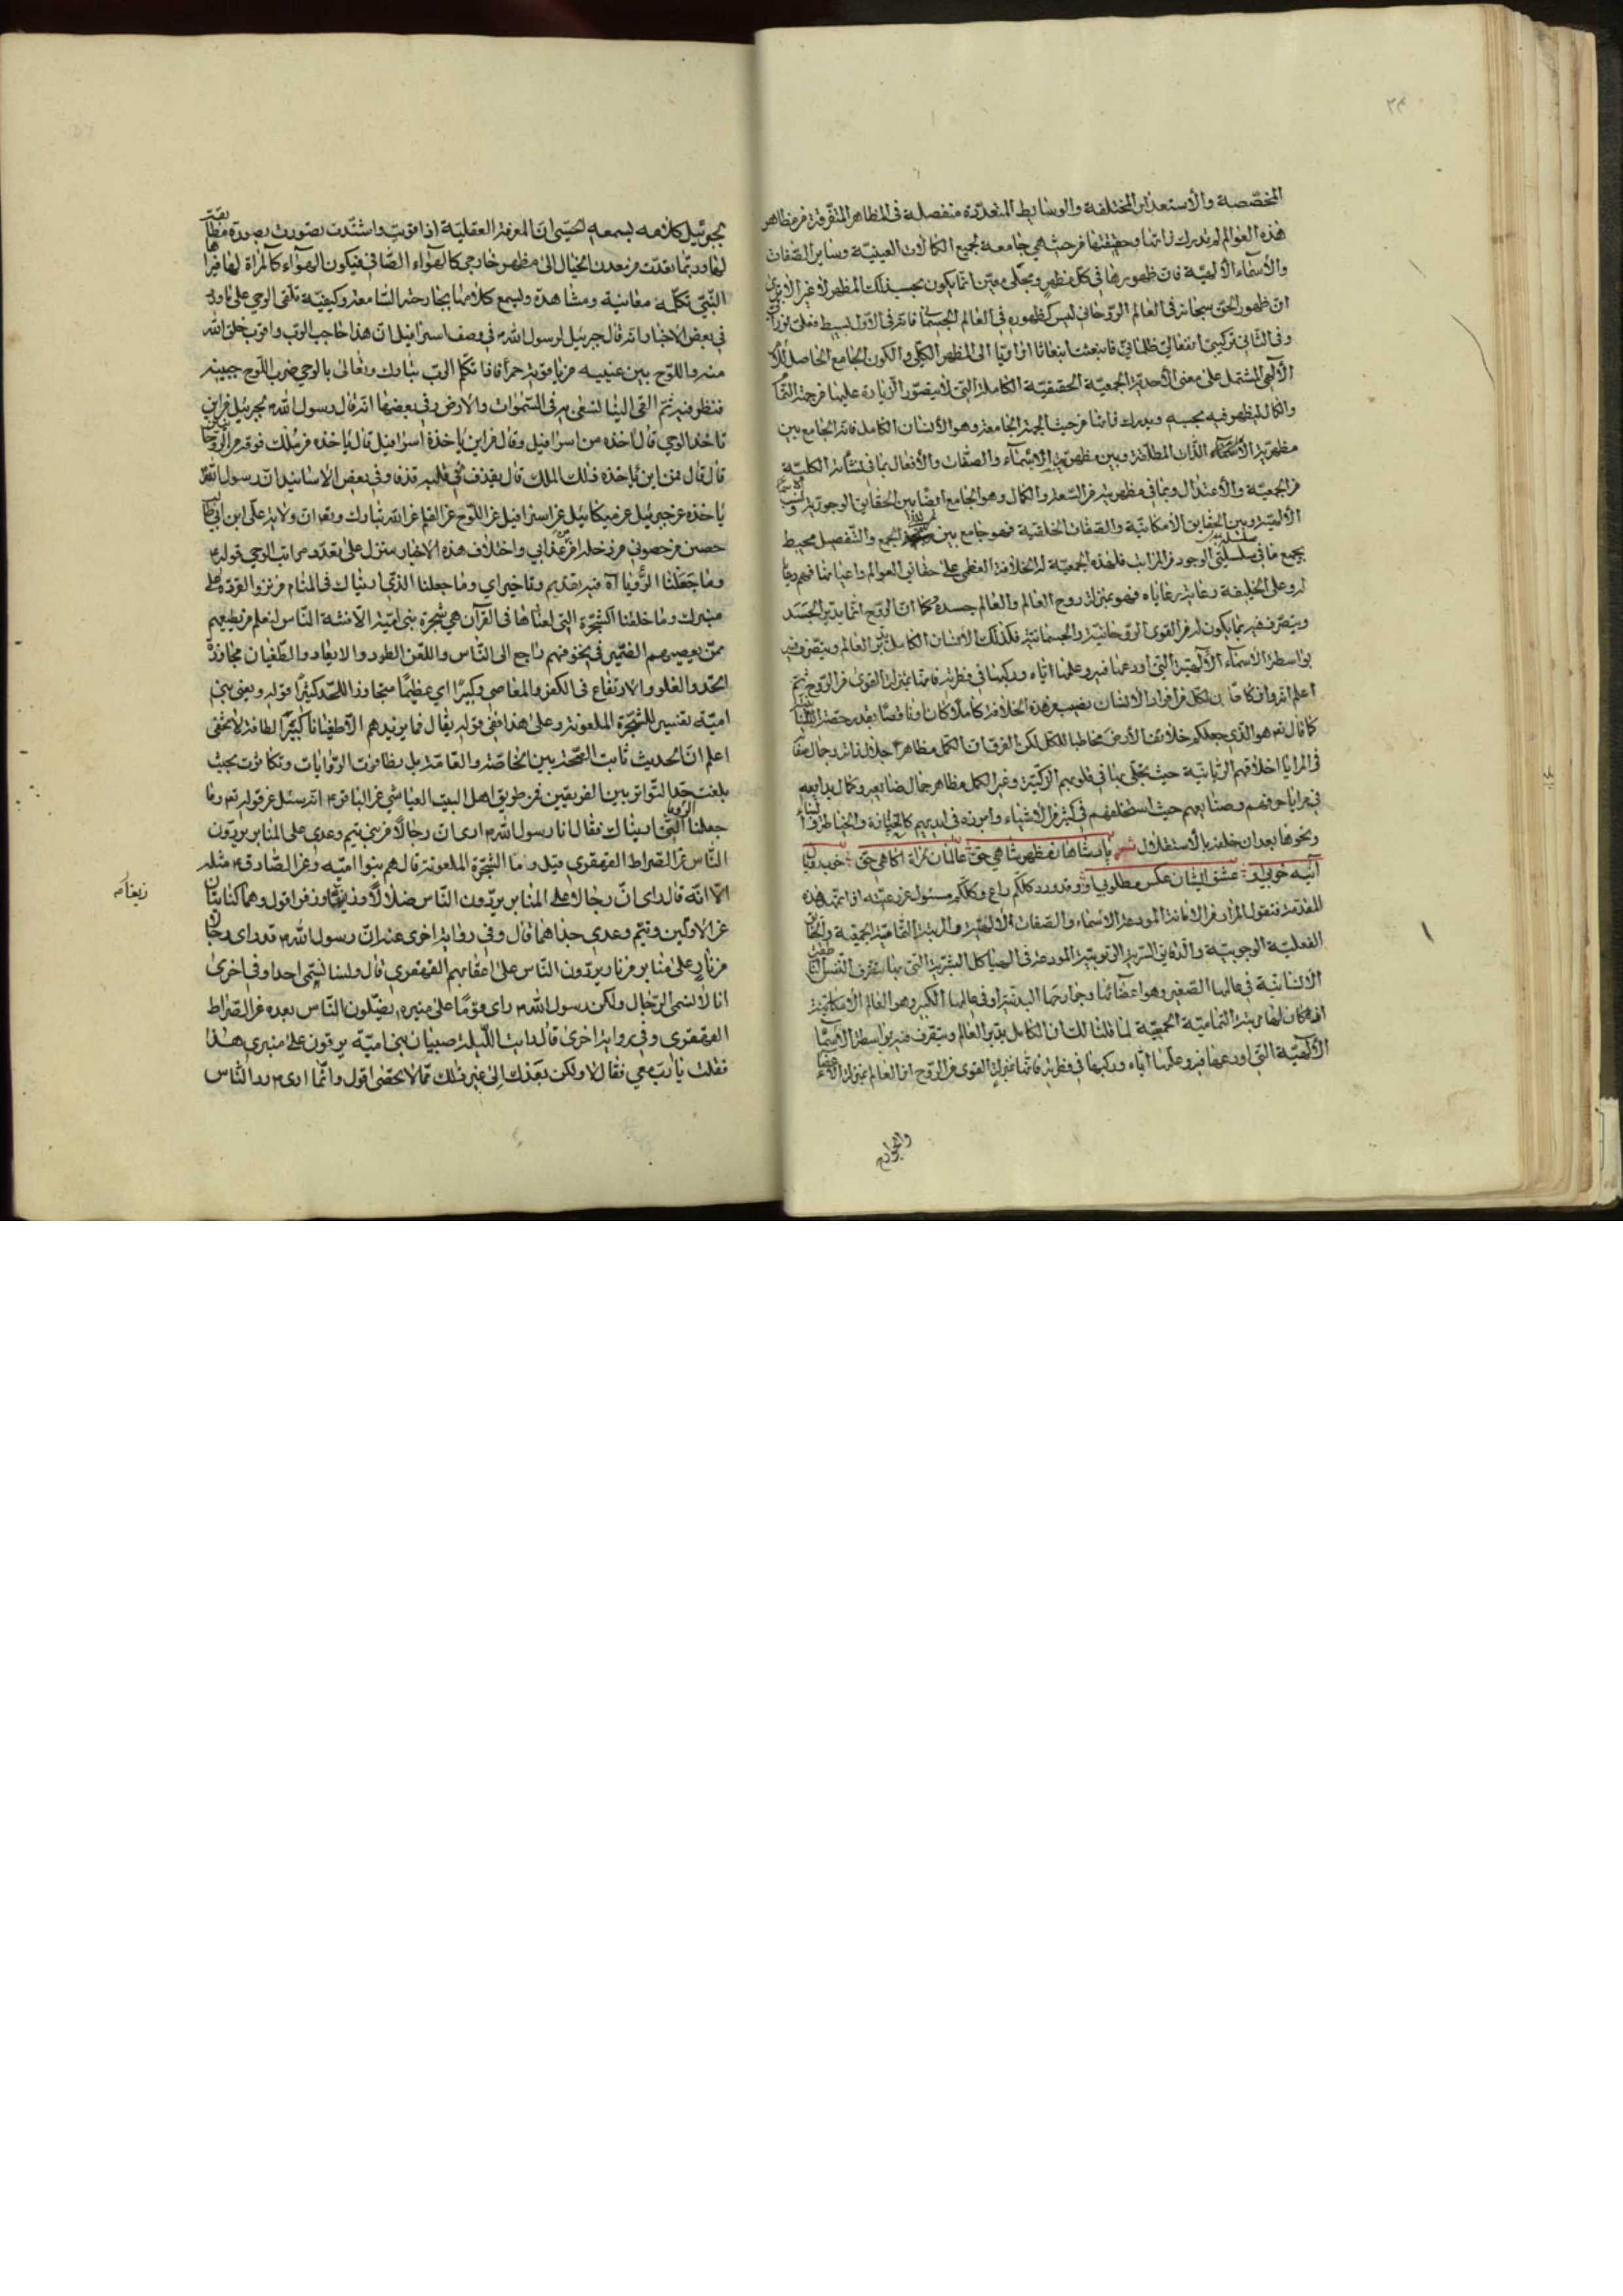 المخصصة والأستعدادات المختلفة والوسايط المتعددة منفصلة في المظاهر المتفرقة من مظاهر
هذه العوالم لم تدرك ذاتها وحقيقتها من حيث هي جامعة لجميع الكمالات العينية وساير الصفات
والأسماء الألهية فان ظهورها في كل مظهر ومجلى معين انما يكون بحسب ذلك المظهر لا غير الا ترى
ان ظهور الحق سبحانه في العالم الروحاني ليس كظهوره في العالم الجسماني فانه في الأول بسيط فعلي نوراني
وفي الثاني تركيبي انفعالي ظلماني فانبعثت انبعاثا اراديا الى المظهر الكلي والكون الجامع الحاصل للأمر
الألهي المشتمل على معنى الأحدية الجمعية الحقيقية الكاملة التي لا يتصور الزيادة عليها من جهة التمام
والكمال ليظهر فيه بحسبه ويدرك ذاتها من حيث الجهة الجامعة وهو الأنسان الكامل فانه الجامع بين
مظهرية الذات المطلقة وبين مظهرية الاسماء والصفات والأفعال بما في نشأته الكلية
من الجمعية والأعتدال وبما في مظهريته من السعة والكمال وهو الجامع ايضا بين الحقايق الوجوبية ونسب الاسماء
الألهية وبين الحقايق الأمكانية والصفات الخلقية فهو جامع بين مرتبتي الجمع والتفصيل محيط
بجميع ما في سلسلتي الوجود من المراتب فلهذه الجمعية له الخلافة العظمى على حقائق العوالم واعيانها فهم رعايا
له وعلى الخليفة رعاية رعاياه فهو بمنزلة روح العالم والعالم جسده فكما ان الروح انما يدبر الجسد
ويتصرف فيه بما يكون له من القوى الروحانية والجسمانية فكذلك الأنسان الكامل يدبر العالم ويتصرف فيه
بواسطة الأسماء الألهية التي اودعها فيه وعلمها اياه وركبها في فطرته فانها بمنزلة القوى من الروح ثم
اعلم انه وان كان لكل من افراد الأنسان نصيب من هذه الخلافة كاملا كان او ناقصا بقدر حصة انسانيته
كما قال تعه هو الذي جعلكم خلائف الأرض مخاطبا للكل لكن الفرق ان الكمل مظاهر جلال ذاته وجمال صفاته
في المرايا اخلاقهم الربانية حيث تجلى بها في قلوبهم الزكية وغير الكمل مظاهر جمال صنايعه وكمال بدايعه
في مرايا حرفهم وصنايعهم حيث استخلفهم في كثير من الأشياء وامرنه في ايديهم كالخبازة والخياطة والبناء
ونحوها بعد ان خلفه بالأستقلال شعر پادشاهان مظهر شاهي حق عالمان مرآة آكاهي حق خوبرويان
آئينه خوبي او عشق ايشان عكس مطلوبي او وقد ورد كلكم راع وكلكم مسئول عن رعيته اذا تمهد هذه
المقدمة فنقول المراد من الأمانة المودعة الأسماء والصفات الألهية والمرتبة التمامية الجمعية والحقايق
الفعلية الوجوبية والدقايق السرية الربوبية المودعة في الهياكل البشرية التي بها يتصرف النفس الناطقة
الأنسانية في عالمها الصغير وهو اعضائها وجوارحها البدنية او في عالمها الكبير وهو العالم الأمكاني
اذا كان لها مرتبة التمامية الجمعية لما قلنا لك ان الكامل يدبر العالم ويتصرف فيه بواسطة الأسماء
الألهية التي اودعها فيه وعلمها اياه وركبها في فطرته فانها بمنزلة القوى من الروح اذا العالم بمنزلة الاعضاء
والجوارح
بجبرئيل كلامه يسمعه الحسي ان المعرفة العقلية اذا قويت واشتدت تصورت بصورة مطابقة
لها وربما تعدت من معدن الخيال الى مظهر خارجي كالهواء الصافي فيكون الهواء كالمرآة لها فيرا
النبي تكلمه معاينة ومشاهدة ويسمع كلامها بجارحته السامعة وكيفية تلقى الوحي على ما ورد
في بعض الاخبار انه قال جبرئيل لرسول الله ص في وصف اسرافيل ان هذا حاجب الرب واقرب خلق الله
منه واللوح بين عينيه من ياقوتة حمراء فاذا تكلم الرب تبارك وتعالى بالوحي ضرب اللوح جبينه
فنظر فيه ثم القى الينا نسعى به في السموات والارض وفي بعضها انه قال رسول الله ص لجبرئيل من اين
تاخذ الوحي قال آخذه من اسرافيل وقال فمن اين ياخذه اسرافيل قال ياخذه من ملك فوقه من الروحانيين
قال قال ممن اين ياخذه ذلك الملك قال يقذف في قلبه قذفا وفي بعض الاسانيد ان رسول الله
ياخذه عن جبرئيل عن ميكائيل عن اسرافيل عن اللوح عن القلم عن الله تبارك وتعه ان ولاية علي ابن ابي طالب
حصني من حصوني من دخله امن عذابي واختلاف هذه الاخبار منزل على تعدد مراتب الوحي قوله تعه
وما جعلنا الرؤيا اه فيه تقديم وتاخير اي وما جعلنا الذي اريناك في المنام من نزو القردة على
منبرك وما خلقنا الشجرة التي لعناها في القرآن هي شجرة بني امية الا فتنة الناس لنعلم من يطيعهم
ممن يعصيهم الضمير في نخوفهم راجع الى الناس واللعن الطرد والابعاد والطغيان مجاوزة
الحد والغلو والارتفاع في الكفر والمعاصي وكبيرا اي عظيما متجاوز اللحد كثيرا قوله ويعني بني
امية تفسير للشجرة الملعونة وعلى هذا ففي قوله يقال فما يزيدهم الا طغيانا كبيرا لطافة لا تخفى
اعلم ان الحديث ثابت الصحة بين الخاصة والعامة بل تظافرت الروايات وتكاثرت بحيث
بلغت حد التواتر بين الفريقين فمن طريق اهل البيت العياشي عن الباقر ع انه سئل عن قوله تعه وما
جعلنا الرؤيا التي اريناك فقال انا رسول الله ص ارى ان رجالا من بني تيم وعدي على المنابر يردون
الناس عن الصراط القهقرى قيل وما الشجرة الملعونة قال هم بنوا امية وعن الصادق ع مثله
الا انه قال رأى ان رجالا على المنابر يردون الناس ضلالا
عن الاولين وتيم وعدي جداهما قال وفي رواية اخرى عنه ان رسول الله ص قد رأى رجالا
من نار على منابر من نار يردون الناس على اعقابهم القهقرى قال ولسنا نسمي احدا وفي اخرى
انا لا نسمي الرجال ولكن رسول الله ص رأى قوما على منبره يضلون الناس بعده عن الصراط
القهقرى وفي رواية اخرى قال رأيت الليلة صبيان بني امية يرقون على منبري هذا
فقلت يا رب معي فقال لا ولكن بعدك الى غير ذلك مما لا يحصى اقول وانما ارى ص رد الناس